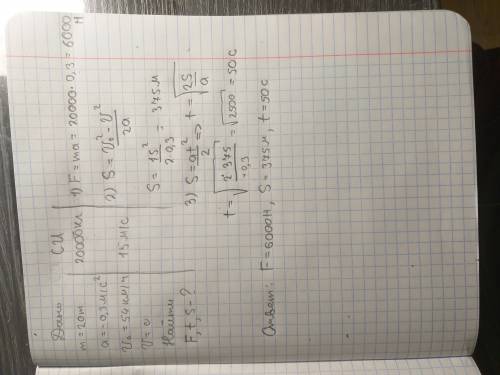 Дано
m = 20т
a = -0,3 м/с²
V₀ = 54 км/ч
V = 0
Найти
F, t, S - ?
СИ
20000кг
15 м/с
1) F = ma = 20000 · 0,3 = 6000 Н
2) S = (V₀² - V²) / 2a
S = 15² / (2 · 0,3) = 375 м
3) S = at² / 2 => t = √(2S / a)
t = √(2·375 / 0,3) = √2500 = 50 с
Ответ: F = 6000Н, S = 375м, t = 50 с